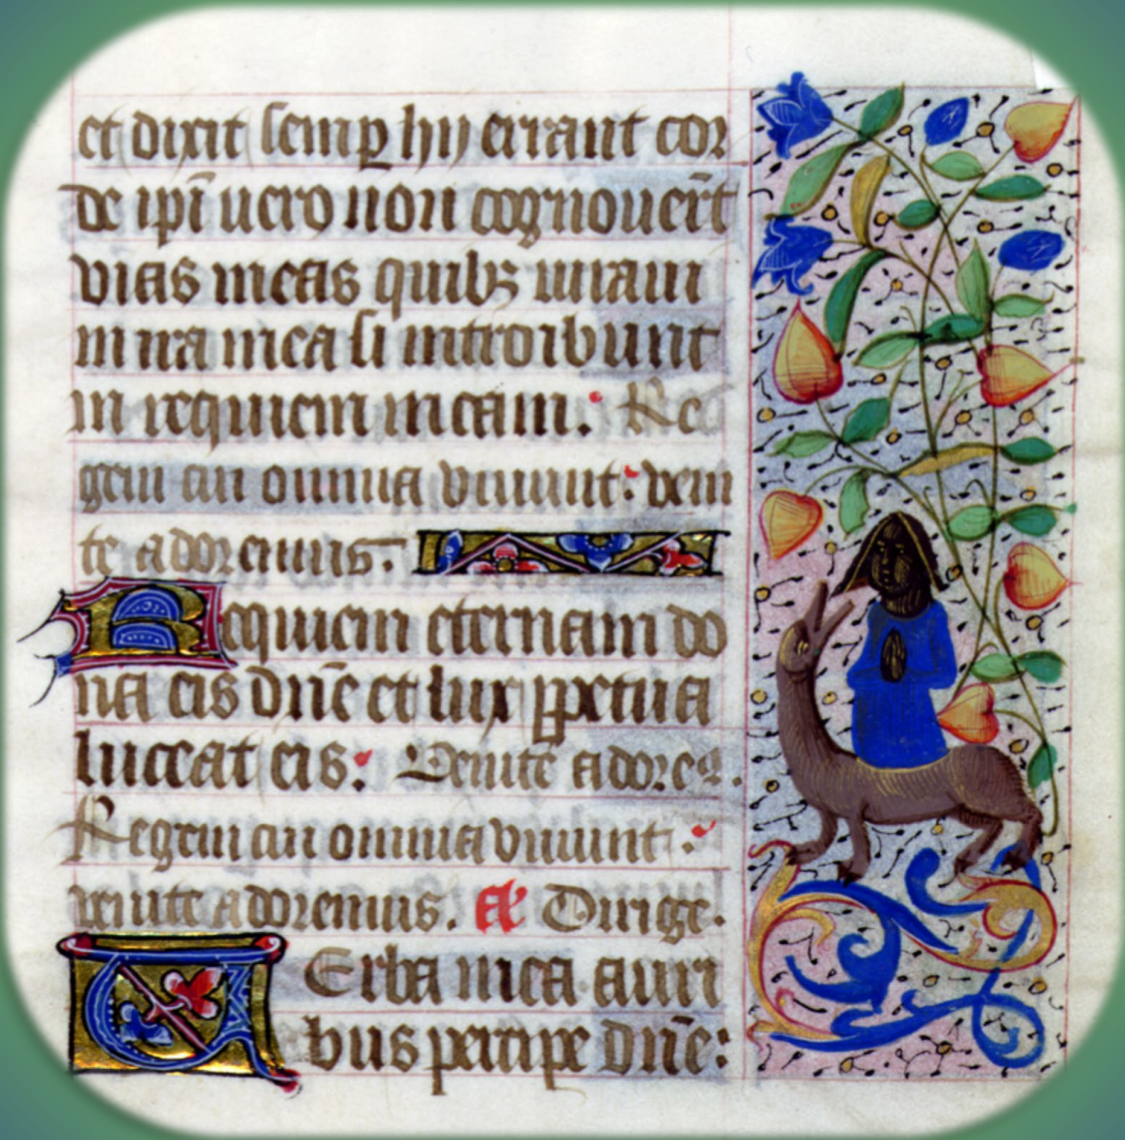 et dixit semp hij errant cor
de ipī uero non cognouerūt
vias meas quibꝫ iuraui
in ira mea si introibunt
in requiem meam. Re
gem cui omnia viuunt: veni
te adoremus.
Requiem eternam do
na eis dn̄e et lux ꝑpetua
luceat eis: Venite adorem⁹.
Regem cui omnia viuunt.
venite adoremus. añ Dirige.
Verba mea auri
bus percipe dn̄e: